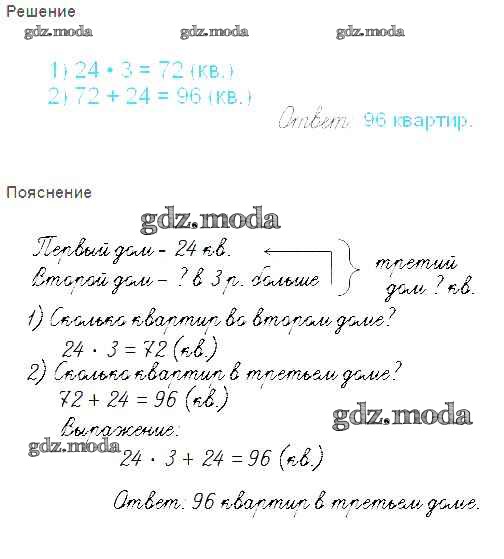 Решение
gdz.moda gdz.moda gdz.moda
1) 24 • 3 = 72 (кв.)
2) 72 + 24 = 96 (кв.)
Ответ: 96 квартир.
Пояснение
gdz.moda
Первый дом - 24 кв.
Второй дом - ? в 3 р. больше
третий
дом ? кв.
1) Сколько квартир во втором доме?
24 · 3 = 72 (кв.)
2) Сколько квартир в третьем доме?
72 + 24 = 96 (кв.)
gdz.moda
Выражение:
gdz.moda
24 · 3 + 24 = 96 (кв.)
Ответ: 96 квартир в третьем доме.